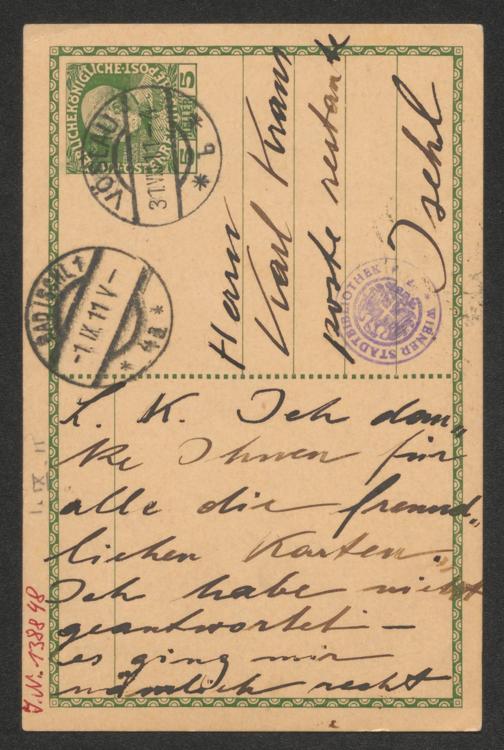 5 HELLER 5
VÖSLAU
31.VIII.11
* b *
BAD ISCHL 1
-1.IX.11 V-
* 4a *
Herrn
Karl Kraus
poste restante
Ischl
WIENER STADTBIBLIOTHEK
L. K. Ich dan„
ke Ihnen für
alle die freund„
lichen Karten.
Ich habe nicht
geantwortet –
es ging mir
nämlich recht
1. IX. 11
J.N. 138848